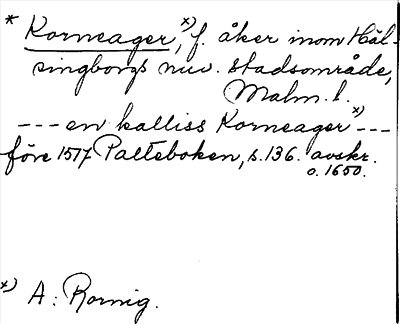 * Korneager,ˣ⁾ f. åker inom Häl-
singborgs nuv. stadsområde,
Malm. l.
--- en kalliss Korneager ˣ⁾ ---
före 1517 Palteboken, s. 136. avskr.
o. 1650.
x) A: Rornig.